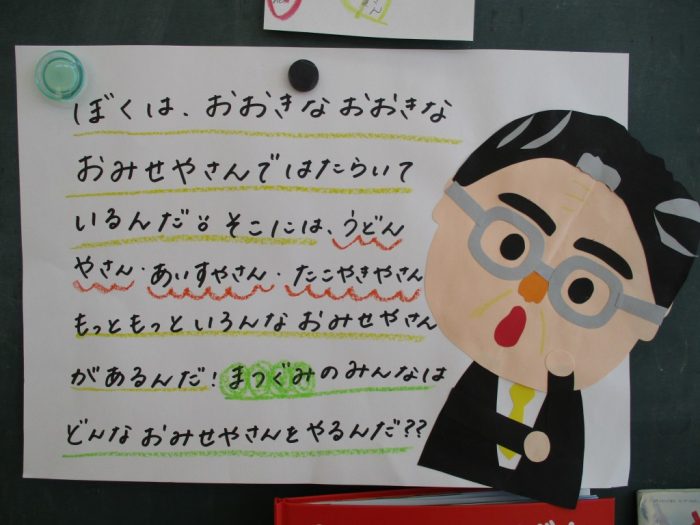 ぼくは、おおきなおおきな
おみせやさんではたらいて
いるんだ。そこには、うどん
やさん・あいすやさん・たこやきやさん
もっともっといろんなおみせやさん
があるんだ!まつぐみのみんなは
どんなおみせやさんをやるんだ??